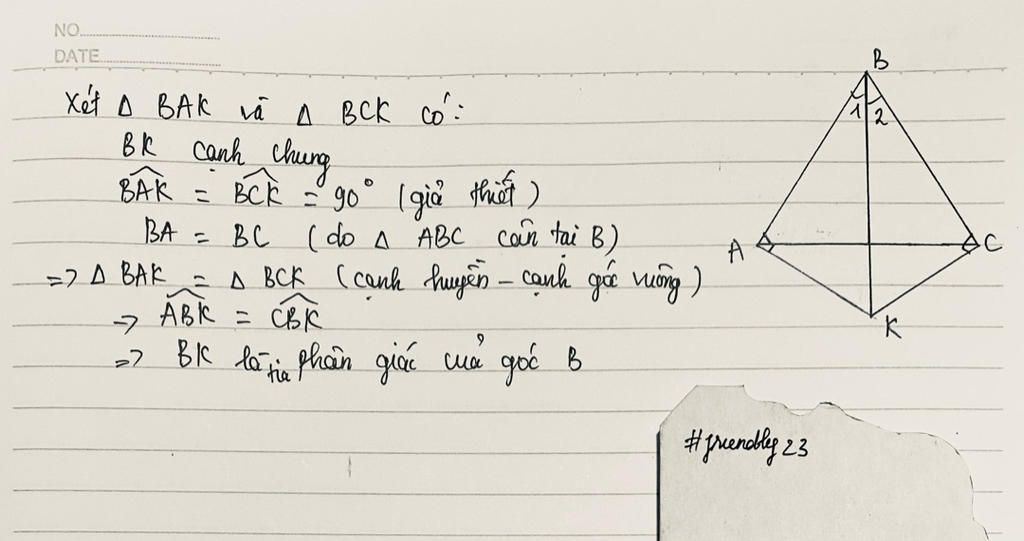 NO.
DATE
Xét Δ BAK và Δ BCK có:
BK cạnh chung
B̂AK = B̂CK = 90° (giả thiết)
BA = BC (do Δ ABC cân tại B)
=> Δ BAK = Δ BCK (cạnh huyền - cạnh góc vuông)
-> ÂBK = ĈBK
=> BK là tia phân giác của góc B
B
1 2
A
C
K